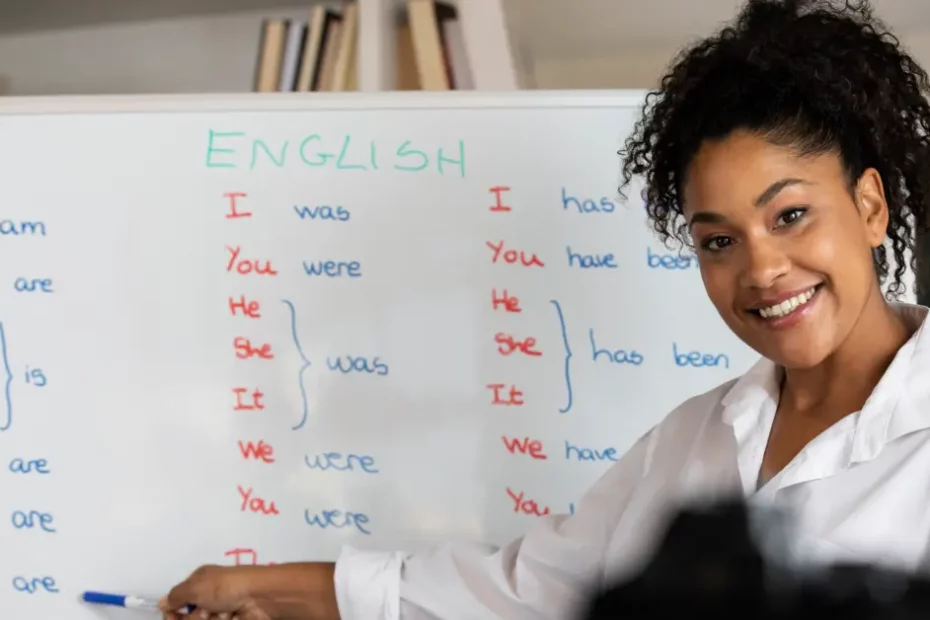 ENGLISH
am
are
is
are
are
are
I was
You were
He
She
It
was
We were
You were
I has
You have been
He
She
It
has been
We have
You